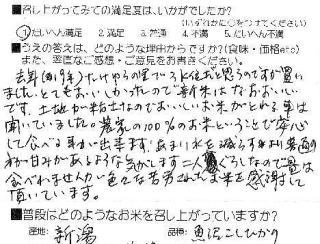 ■召し上がってみての満足度は、いかがでしたか?
(いずれかに○をつけてください)
①だいへん満足 2.満足 3.普通 4.不満 5.だいへん不満
■うえの答えは、どのような理由からですか?(食味・価格etc)
また、率直なご感想・ご意見をお書きください。
去年(19年)たけやらの里でのお米と思うのですが買い
ました。とてもおいしかったので新米はなおおいし
です。土地が粘土なのでおいしいお米がとれる事は
聞いていました。農家の100%のお米ということで安心
して食べる事が出来ます。あまり水を減らすより普通の
水が甘みがあるような気がします 二人ぐらしなので量は
食べれませんが色々な苦労されたお米を感謝して
頂いています。
■普段はどのようなお米を召し上がっていますか?
産地: 新潟 品種: 魚沼こしひかり